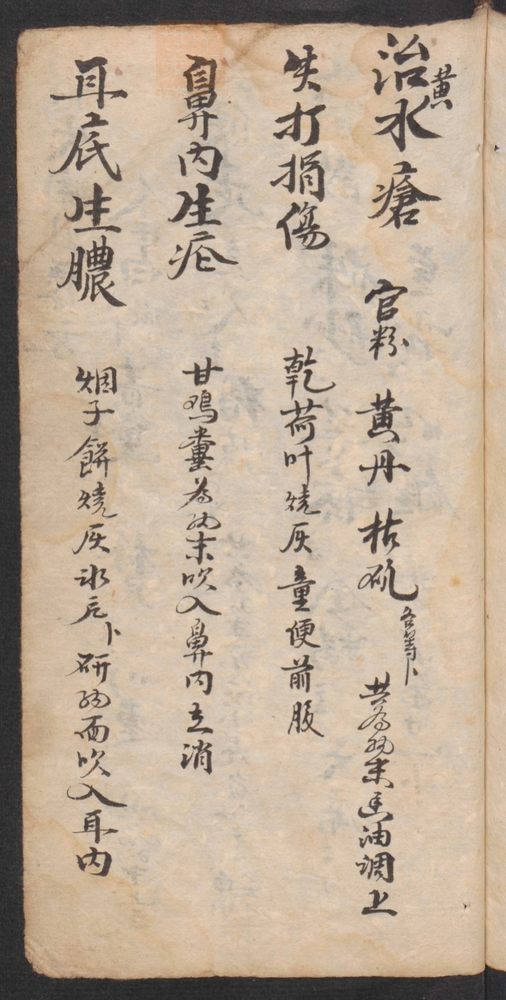 治黄水瘡 官粉 黄丹 枯矾 各等卜 共為细末 油調上
失打損傷 乾荷叶燒灰童便前服
鼻内生疮 甘鳮糞為细末吹入鼻内立消
耳底生膿 烟子餅燒灰氷片卜研细面吹入耳内